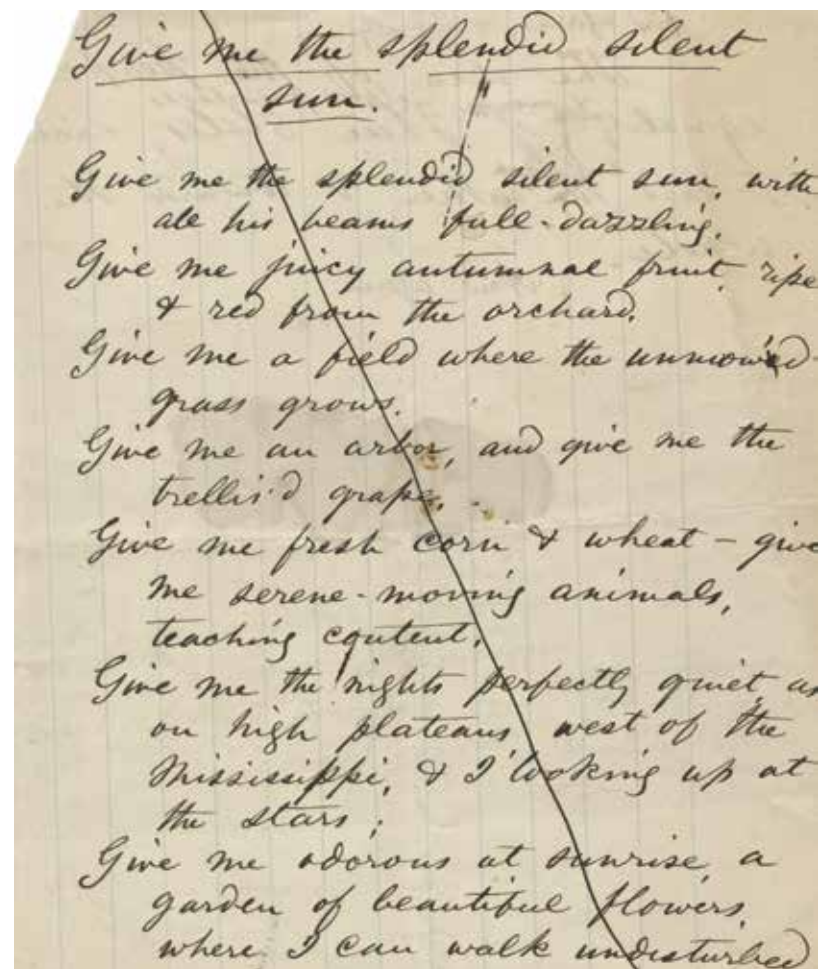 Give me the splendid silent
sun.
Give me the splendid silent sun, with
all his beams full-dazzling,
Give me juicy autumnal fruit, ripe
& red from the orchard,
Give me a field where the unmow'd
grass grows,
Give me an arbor, and give me the
trellis'd grape,
Give me fresh corn & wheat – give
me serene-moving animals,
teaching content,
Give me the nights perfectly quiet, as
on high plateaus west of the
Mississippi, & I looking up at
the stars;
Give me odorous at sunrise a
garden of beautiful flowers,
where I can walk undisturbed